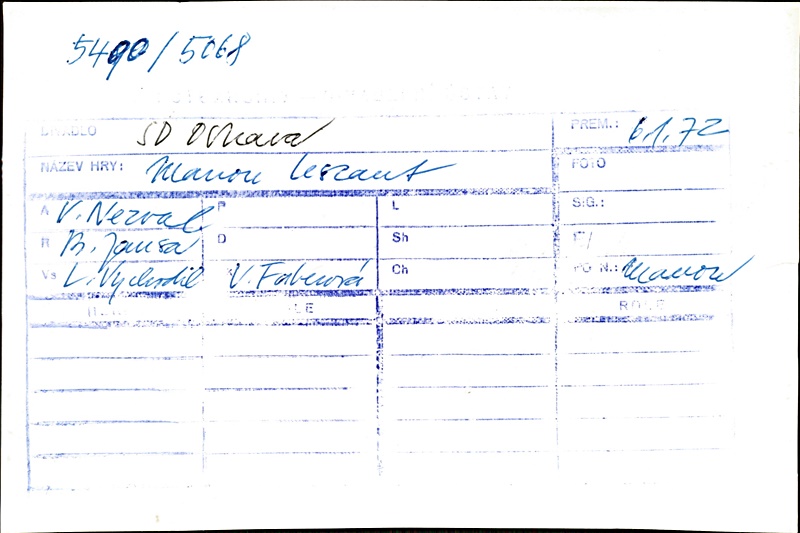 5490/5068
DIVADLO SD Ostrava PREM.: 6.1.72
NÁZEV HRY: Manon Lescaut FOTO
A V. Nezval P L SIG.:
R B. Jansa D Sh
Vs L. Vychodil V. Faberová Ch PO N.: Manon
ROLE